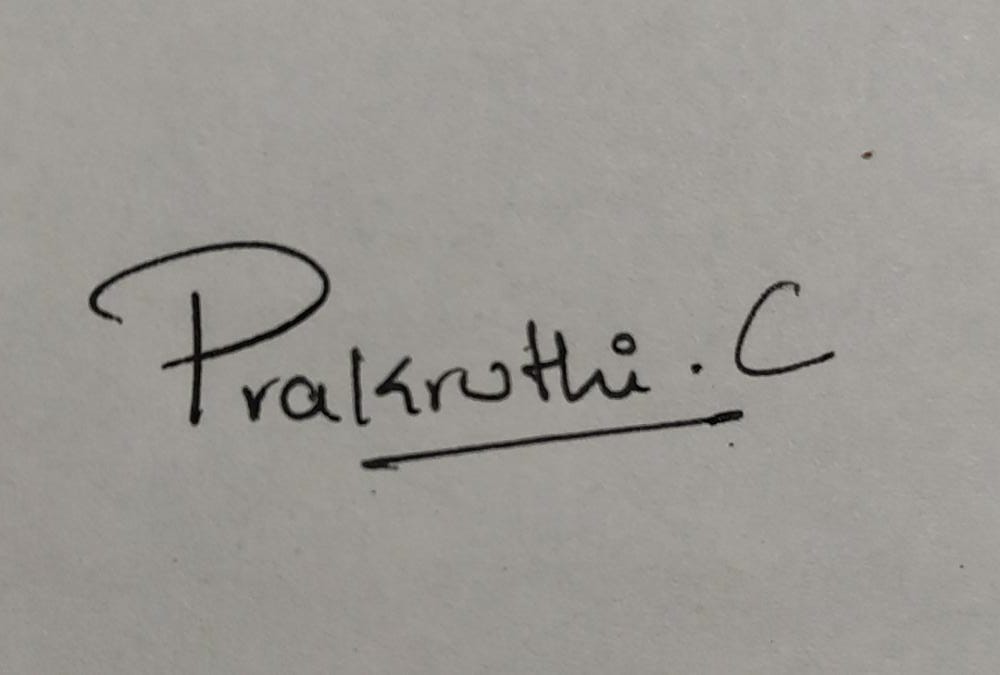 Prakruthi . C